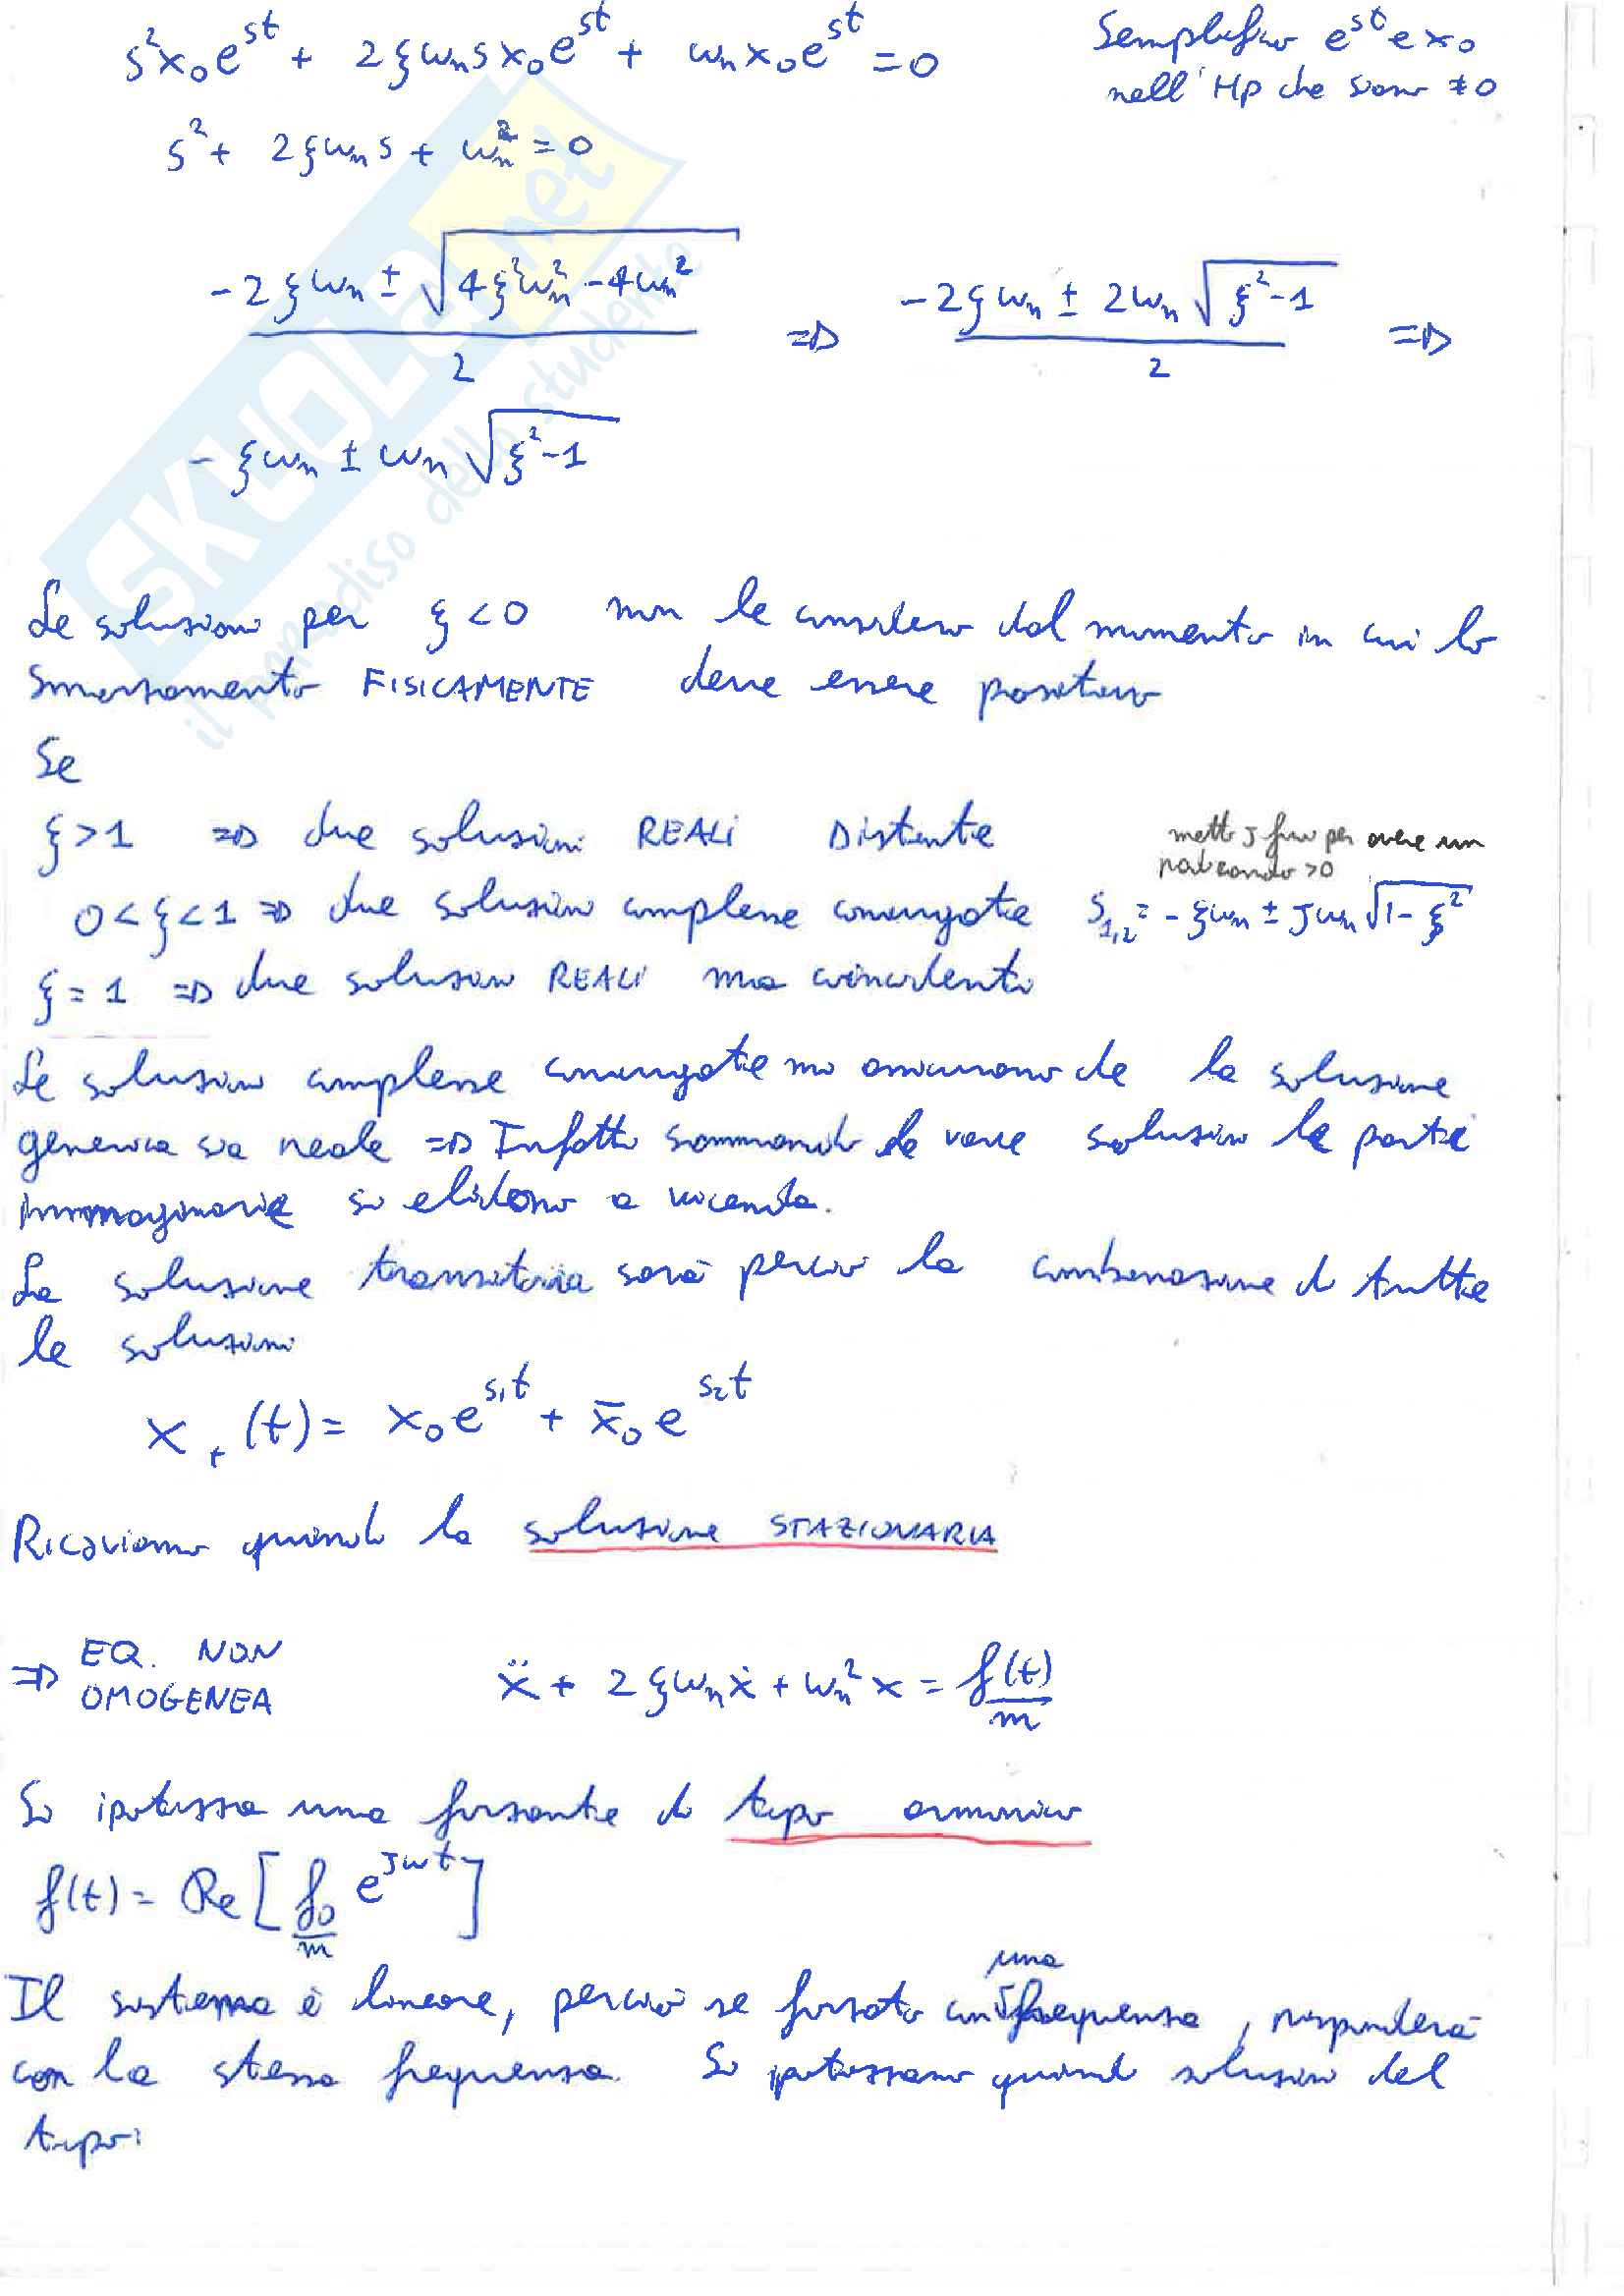 s²x₀e^{st} + 2ξωₙsx₀e^{st} + ωₙx₀e^{st} = 0
Semplifico e^{st} e x₀
nell'Hp che siano ≠0
s² + 2ξωₙs + ωₙ² = 0
(-2ξωₙ ± √(4ξ²ωₙ² - 4ωₙ²))/2 => (-2ξωₙ ± 2ωₙ√(ξ²-1))/2 =>
-ξωₙ ± ωₙ√(ξ²-1)
SKUOLA.net
il paradiso dello studente
Le soluzioni per ξ<0 non le considero dal momento in cui lo
smorzamento FISICAMENTE deve essere positivo
Se
ξ>1 => due soluzioni REALI Distinte
metto j fuori per avere un
radicando >0
0<ξ<1 => due soluzioni complesse coniugate s₁,₂ = -ξωₙ ± jωₙ√(1-ξ²)
ξ=1 => due soluzioni REALI ma coincidenti
Le soluzioni complesse coniugate mi assicurano che la soluzione
generica sia reale => Infatti sommando le varie soluzioni le parti
immaginarie si elidono a vicenda.
La soluzione transitoria sarà perciò la combinazione di tutte
le soluzioni
x_t(t) = x₀e^{s₁t} + x̄₀e^{s₂t}
Ricaviamo quindi la soluzione STAZIONARIA
=> EQ. NON
OMOGENEA
ẍ + 2ξωₙẋ + ωₙ²x = f(t)/m
Si ipotizza una forzante di tipo armonico
f(t) = Re[f₀/m e^{jωt}]
Il sistema è lineare, perciò se forzato con una frequenza, risponderà
con la stessa frequenza. Si ipotizzano quindi soluzioni del
tipo: